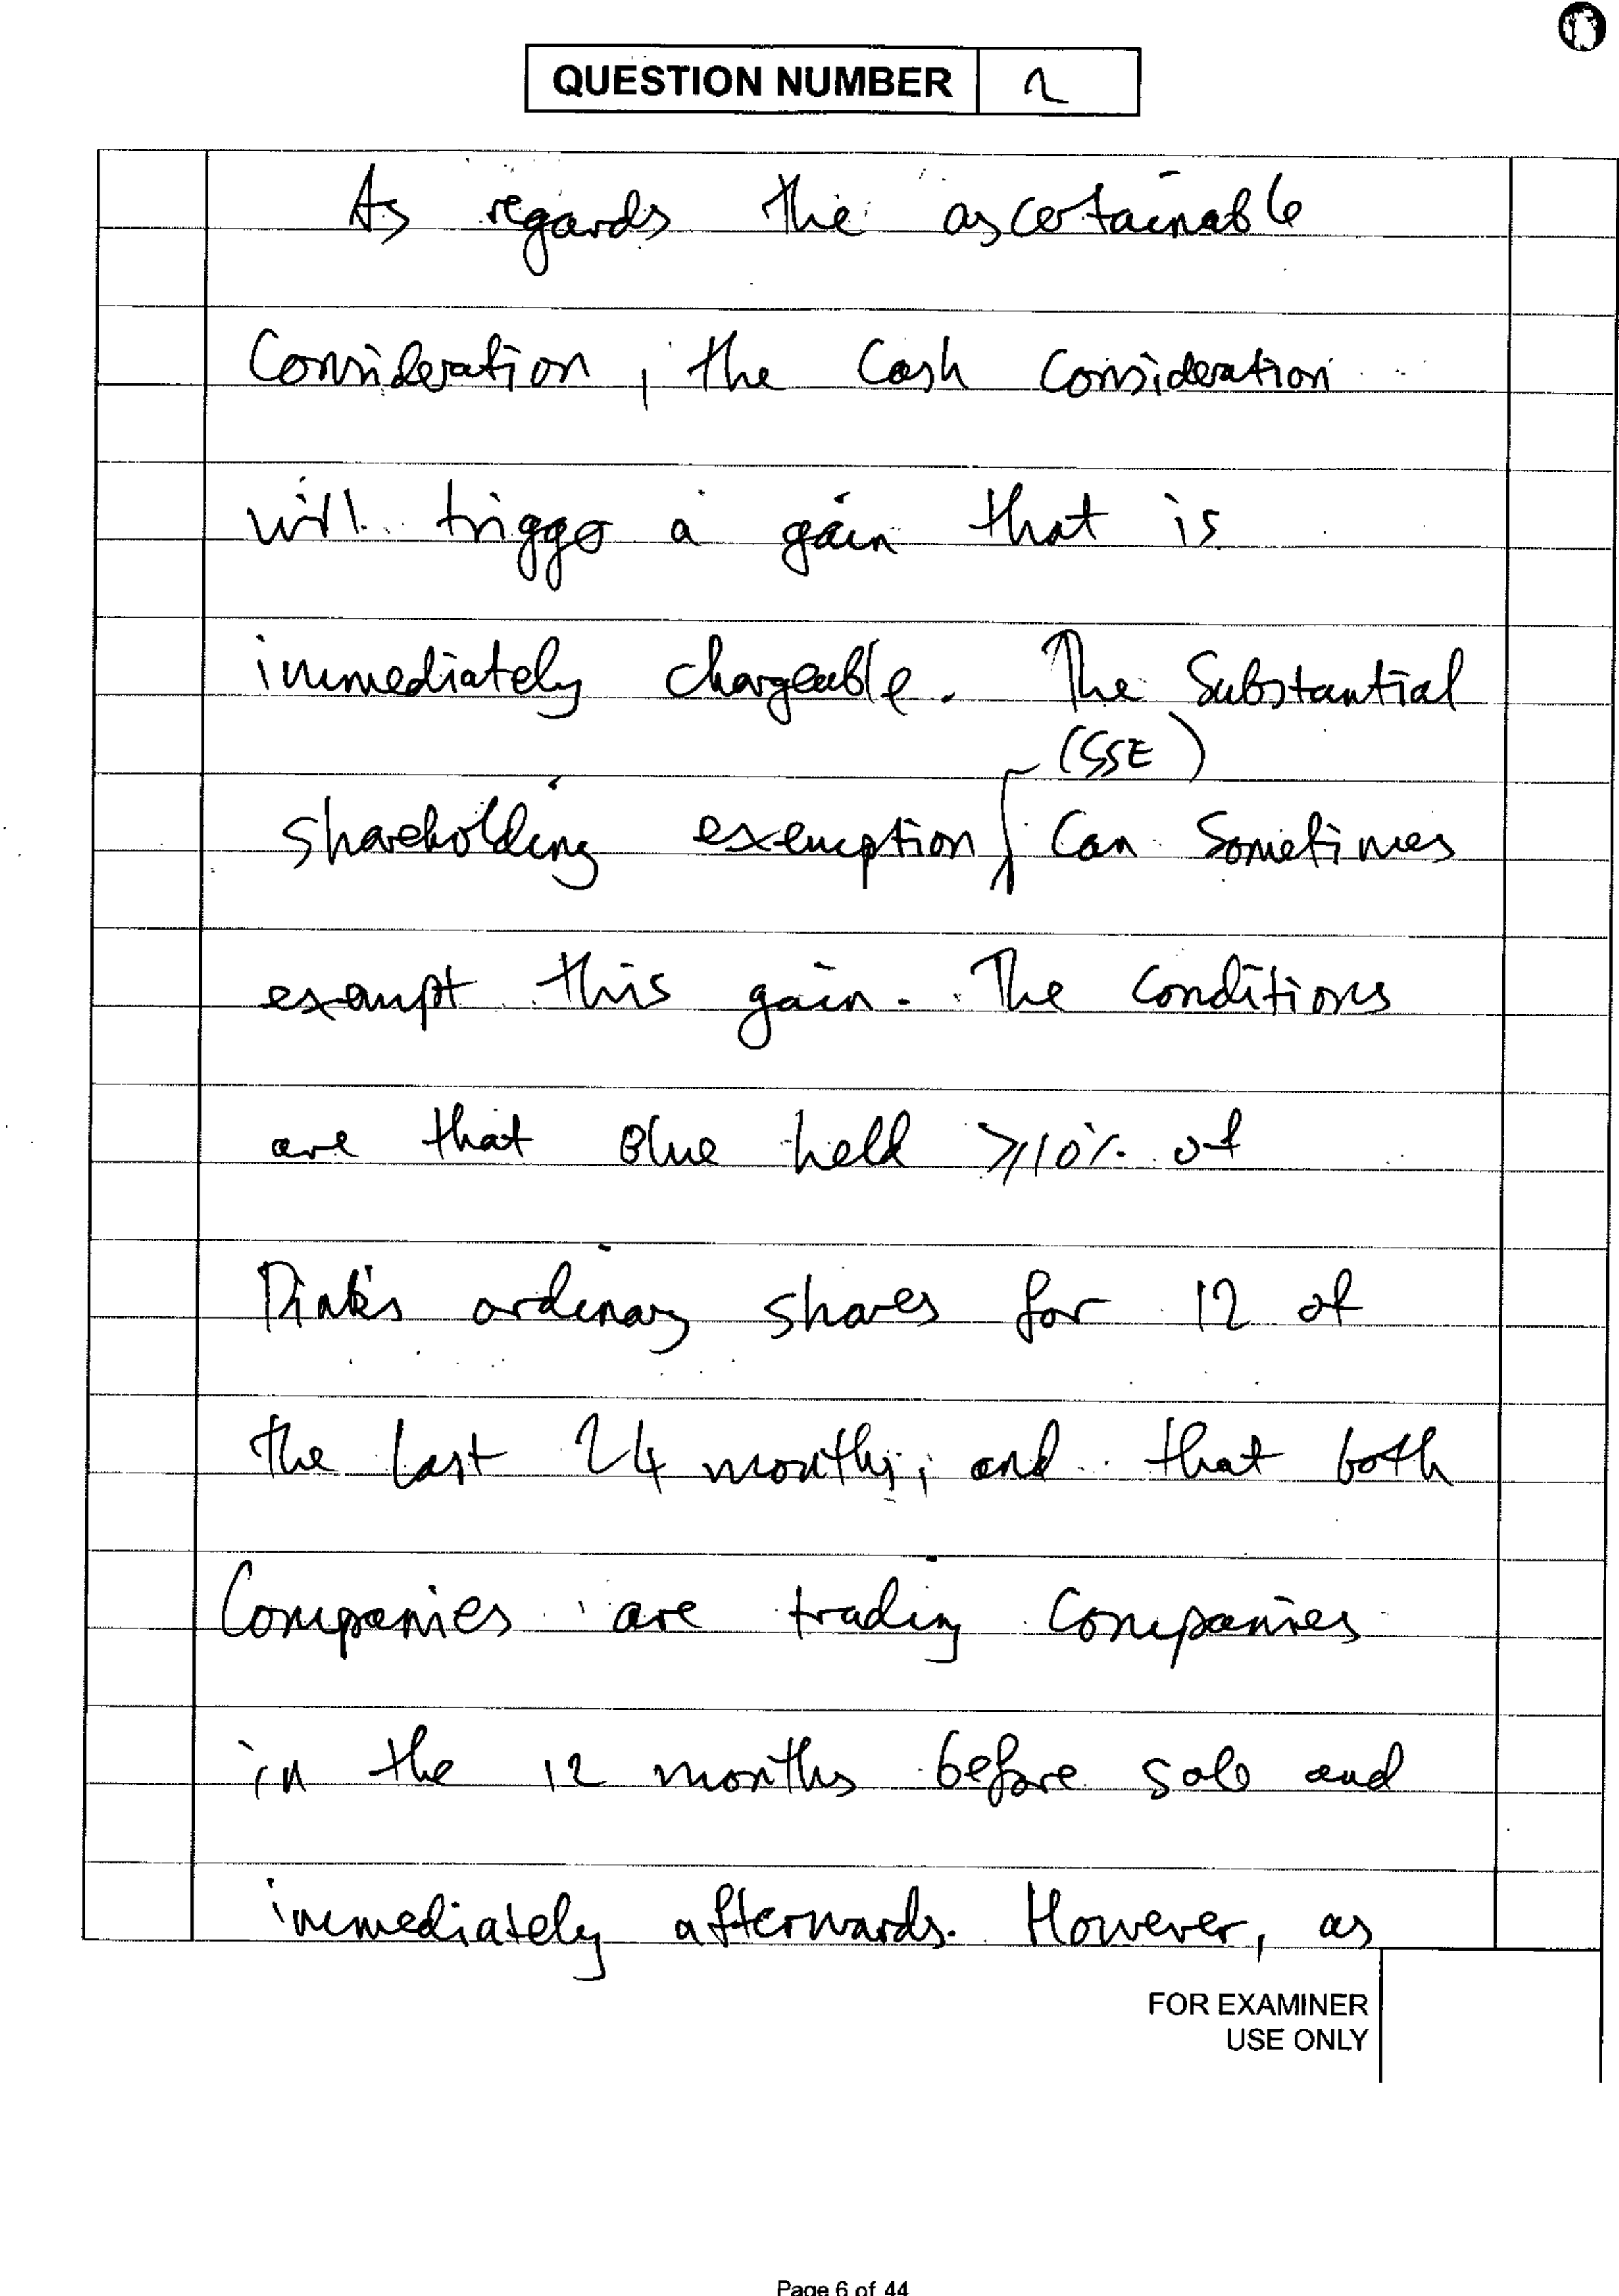 QUESTION NUMBER 2
As regards the ascertainable
Consideration, the Cash Consideration
will trigger a gain that is
immediately chargeable. The Substantial
(SSE)
shareholding exemption Can Sometimes
exempt this gain. The conditions
are that Blue held ≥10% of
Pink's ordinary shares for 12 of
the last 24 months; and that both
Companies are trading Companies
in the 12 months before sale and
immediately afterwards. However, as
FOR EXAMINER
USE ONLY
Page 6 of 44